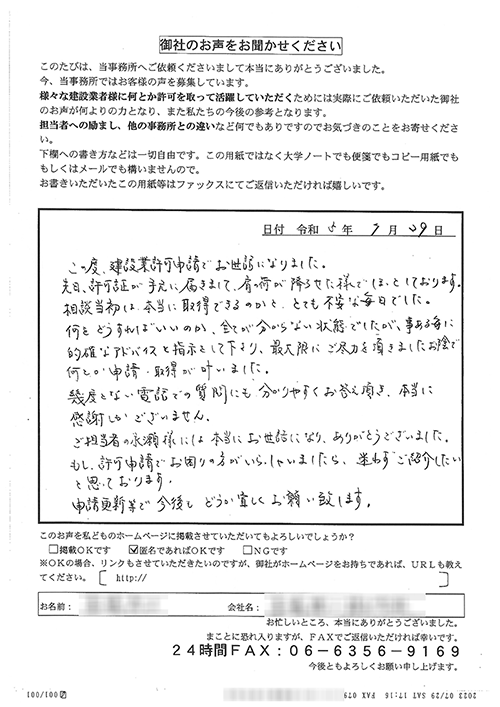 御社のお声をお聞かせください
このたびは、当事務所へご依頼くださいまして本当にありがとうございました。
今、当事務所ではお客様の声を募集しています。
様々な建設業者様に何とか許可を取って活躍していただくためには実際にご依頼いただいた御社
のお声が何よりの力となり、また私たちの今後の参考となります。
担当者への励まし、他の事務所との違いなど何でもありですのでお気づきのことをお寄せくださ
い。
下欄への書き方などは一切自由です。この用紙ではなく大学ノートでも便箋でもコピー用紙でも
もしくはメールでも構いませんので。
お書きいただいたこの用紙等はファックスにてご返信いただければ嬉しいです。
日付 令和 5 年 7 月 29 日
この度、建設業許可申請でお世話になりました。
先日、許可証が手元に届きまして、肩の荷が降ろせた様でほっとしております。
相談当初は、本当に取得できるのかと、とても不安な毎日でした。
何をどうすればいいのか、全てが分からない状態でしたが、事ある毎に
的確なアドバイスと指示をして下さり、最大限にご尽力を頂きましたお陰で
何とか申請・取得が叶いました。
幾度とない電話での質問にも、分かりやすくお答え頂き、本当に
感謝しかございません。
ご担当者の永瀬様には本当にお世話になり、ありがとうございました。
もし、許可申請でお困りの方がいらっしゃいましたら、迷わずご紹介したい
と思っております。
申請更新等で今後もどうか宜しくお願い致します。
このお声を私どものホームページに掲載させていただいてもよろしいでしょうか?
□掲載OKです ☑匿名であればOKです □NGです
※OKの場合、リンクもさせていただきたいのですが、御社がホームページをお持ちであれば、URLも教え
てください。[ http:// ]
お名前: 会社名:
お忙しいところ、本当にありがとうございました。
まことに恐れ入りますが、FAXでご返信いただければ幸いです。
24時間FAX:06-6356-9169
今後ともよろしくお願い申し上げます。
2023 07/29 SAT 17:16 FAX 079
001/001